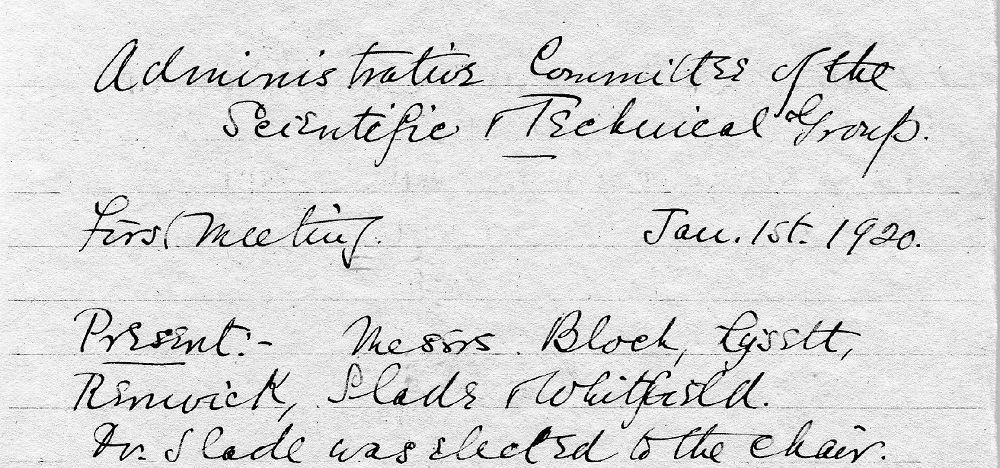 Administrative Committee of the
Scientific & Technical Group.
First Meeting. Jan. 1st. 1920.
Present:- Messrs. Bloch, Lysett,
Renwick, Slade & Whitfield.
Dr. Slade was elected to the chair.